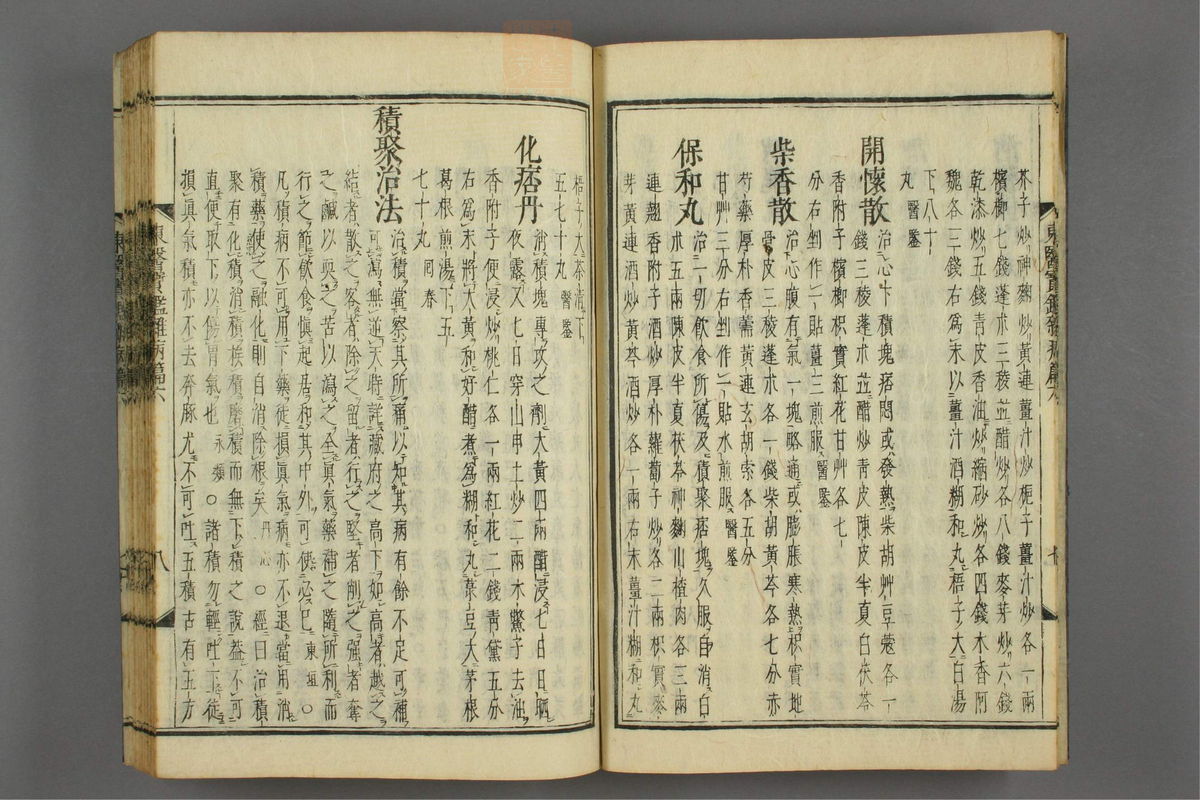 芥子炒神麴炒黃連薑汁炒梔子薑汁炒各一兩
檳榔七錢蓬朮三稜並醋炒各八錢麥芽炒六錢
乾漆炒五錢靑皮香油炒縮砂炒各四錢木香阿
魏各三錢右爲末以薑汁酒糊和丸梧子大白湯
下八十
丸醫鑒
開懷散
治心下積塊痞悶或發熱柴胡艸豆蔲各一
錢三稜蓬朮並醋炒靑皮陳皮半夏白茯苓
香附子檳榔枳實紅花甘艸各七
分右剉作一貼薑三煎服醫鑒
柴香散
治心腹有氣一塊略通或膨脹寒熱枳實地
骨皮三稜蓬朮各一錢柴胡黃芩各七分赤
芍藥厚朴香薷黃連玄胡索各五分
甘艸三分右剉作一貼水煎服醫鑒
保和丸
治一切飮食所傷及積聚痞塊久服自消白
朮五兩陳皮半夏茯苓神麴山楂肉各三兩
連翹香附子酒炒厚朴蘿蔔子炒各二兩枳實麥
芽黃連酒炒黃芩酒炒各一兩右末薑汁糊和丸
東醫寶鑑雜病篇六
七
梧子大茶淸下
五七十丸醫鑒
化痞丹
消積塊專攻之劑大黃四兩醋浸七日日晒
夜露又七日穿山甲土炒二兩木鱉子去油
香附子便浸炒桃仁各一兩紅花二錢靑黛五分
右爲末將大黃和好醋煮爲糊和丸菉豆大茅根
葛根煎湯下五
七十丸回春
積聚治法
治積當察其所痛以知其病有餘不足可補
可瀉無逆天時詳藏府之高下如高者越之
結者散之客者除之留者行之堅者削之强者奪
之鹹以耎之苦以瀉之全眞氣藥補之隨所利而
行之節飮食愼起居和其中外可使必已東垣○
凡積病不可用下藥徒損眞氣病亦不退當用消
積藥使之融化則自消除根矣丹心○經曰治積
聚有化積消積候積磨積而無下積之說盖不可
直便取下以傷胃氣也永類○諸積勿輕吐下徒
損眞氣積亦不去奔豚尤不可吐五積古有五方
東醫寶鑑雜病篇六
八